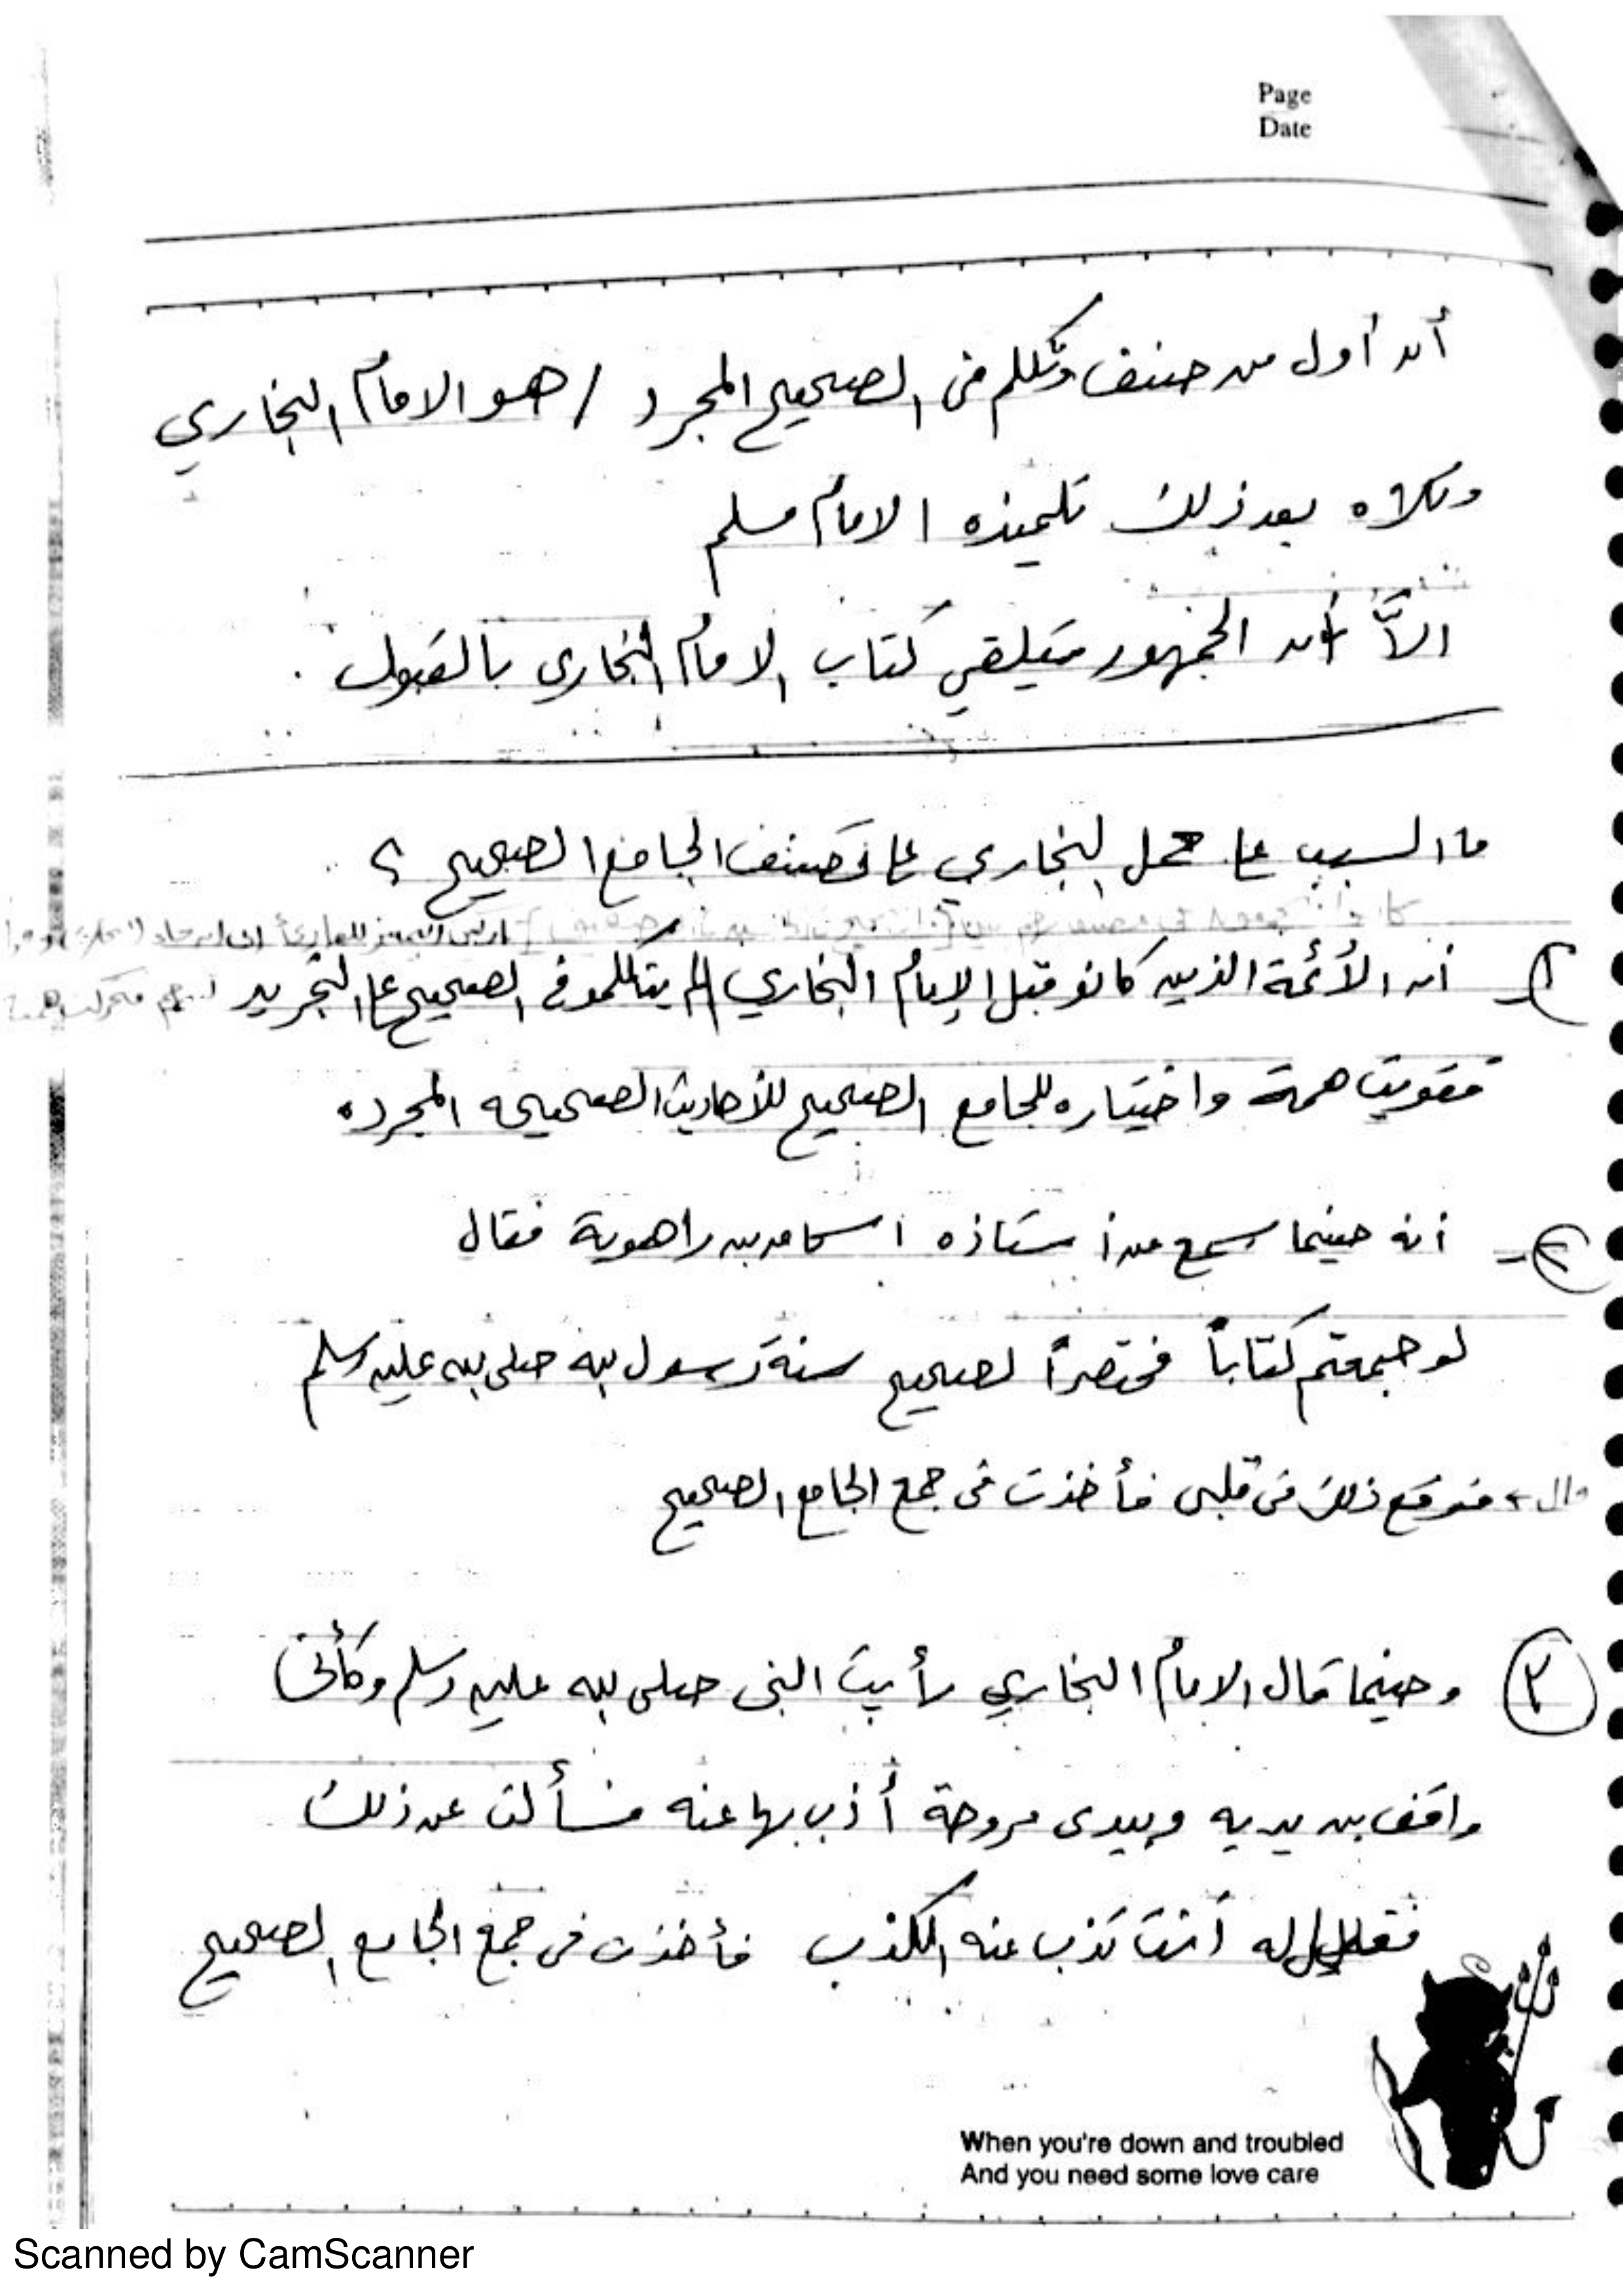 Page
Date
أن أول من صنف وتكلم في الصحيح المجرد / هو الامام البخاري
وتلاه بعد ذلك تلميذه الامام مسلم
الاَّ أن الجمهور متيلقي كتاب الامام البخاري بالقبول .
ما السبب على حمل البخاري على تصنف الجامع الصحيح ؟
١- أن الأئمة الذين كانو قبل الإمام البخاري لم يتكلمو في الصحيح على التجريد
فقويت همة واختياره للجامع الصحيح للأحاديث الصحيحه المجرده
٢- أنه حينما سمع من أستاذه اسحاق بن راهوية فقال
لو جمعتم كتاباً مختصراً لصحيح سنة رسول الله صلى الله عليه وسلم
قال: فوقع ذلك في قلبي فأخذت في جمع الجامع الصحيح
٣ وحينما قال الامام البخاري رأيت النبي صلى الله عليه وسلم وكأني
واقف بين يديه وبيدي مروحة أذب بها عنه فسألت عن ذلك
فقال له أنت تذب عنه الكذب فأخذت في جمع الجامع الصحيح
When you're down and troubled
And you need some love care
Scanned by CamScanner